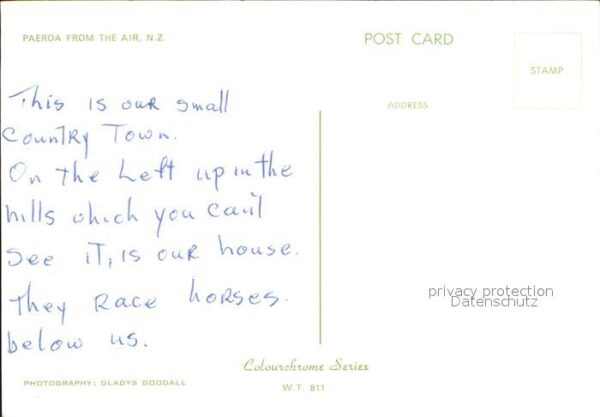 PAEROA FROM THE AIR, N.Z.
POST CARD
STAMP
ADDRESS
This is our small
Country Town.
On the Left up in the
hills which you can't
See it, is our house.
They Race horses.
below us.
privacy protection
Datenschutz
Colourchrome Series
W.T. 811
PHOTOGRAPHY: GLADYS GOODALL